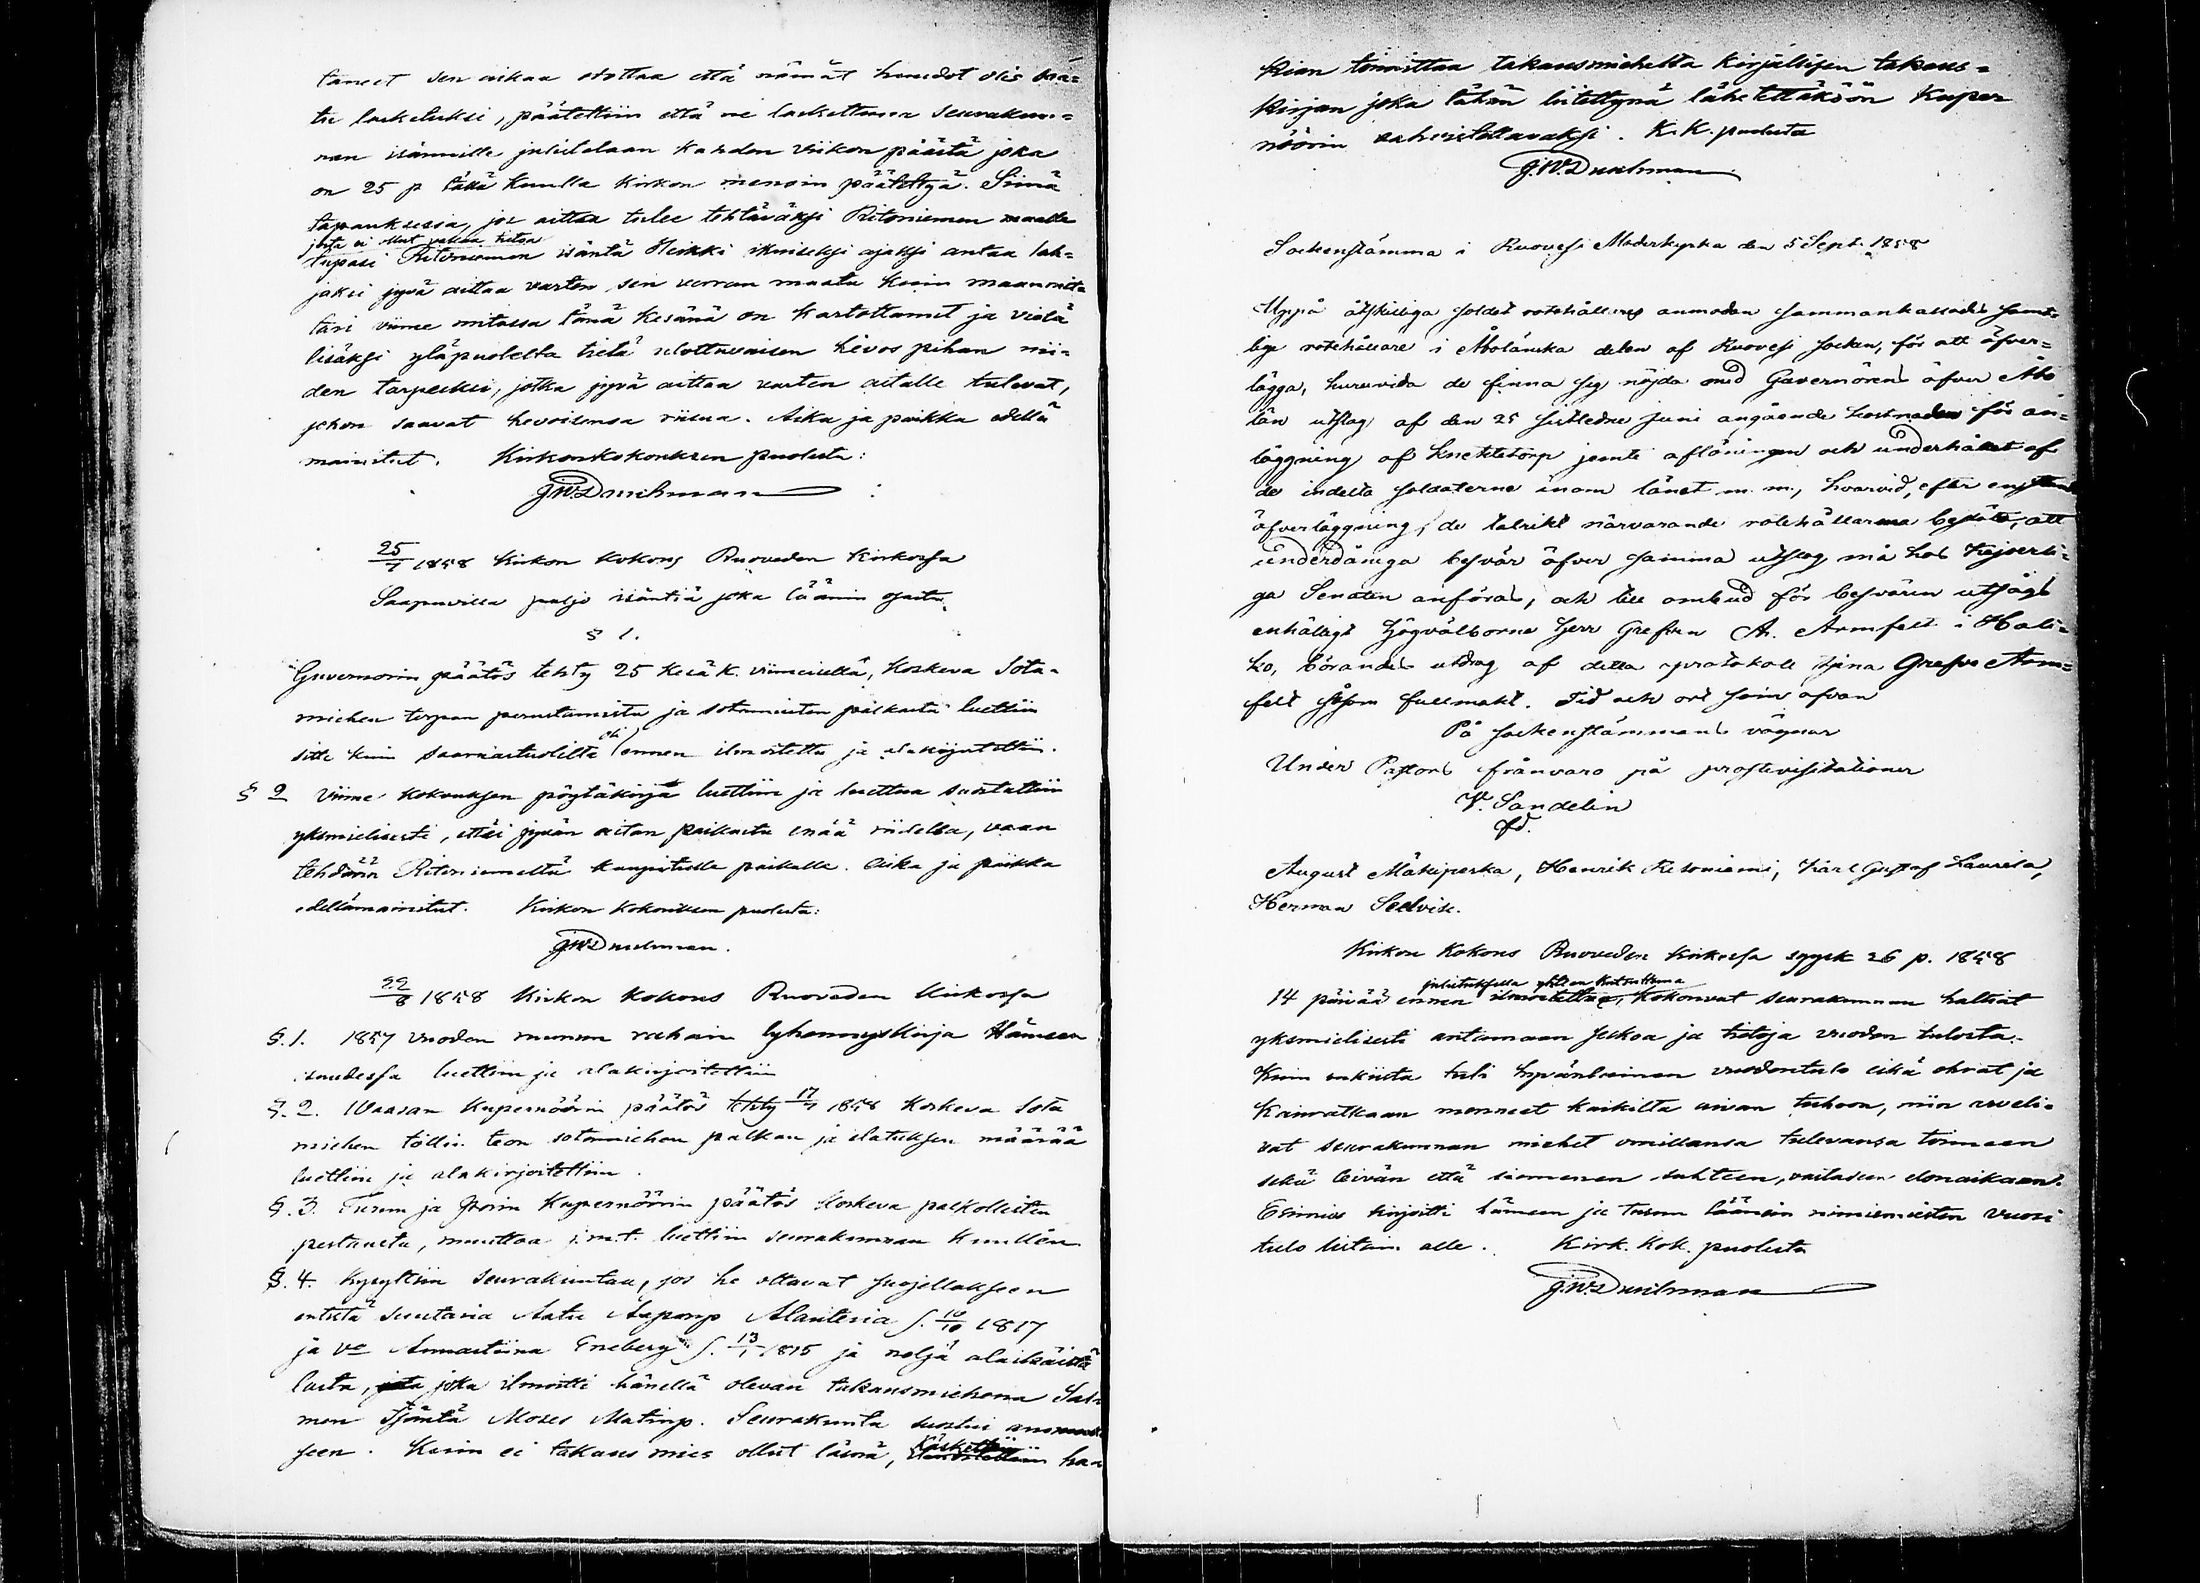 taneet sen aikaa odottaa että nämät huudot olis saa-
tu laskeluksi, päätettiin että ne laskettaan seurakun-
nan isännille julistetaan kahden viikon päästä joka
on 25 p tätä kuulla kirkon menoin päätettyä. Siinä
tapauksessa, jos aittaa tulee tehtäväksi Ritoniemen maalle
josta ei ollut vakaa tietoa
lupasi Ritoniemen isäntä Heikki ikuiseksi ajaksi antaa lah-
jaksi jyvä aittaa varten sen verran maata kuin maanmit-
tari viime mitassa tänä kesänä on kartottanut ja vielä
lisäksi yläpuolelta tietä ulottuvaisen hevospihan nii-
den tarpeeksi, jotka jyvä aittaa varten aitalle tulevat,
johon saavat hevoisensa riisua. Aika ja paikka edellä
mainitut. Kirkonkokouksen puolesta:
J.W. Durchman
25/7 1858 Kirkon kokous Ruoveden kirkossa
Saapuvilla paljo isäntiä joka läänin osasta
§ 1.
Guvernörin päätös tehty 25 kesäk. viimeisellä, koskeva Sota-
miehen torpan perustamista ja sotamiesten palkasta luettiin
sitte kuin saarnastuolilta oli ennen ilmoitettu ja alakirjoitettiin.
§ 2 Viime kokouksen pöytäkirja luettiin ja luettua suostuttiin
yksmielisesti, ettei jyvän aitan paikasta enää riidellä, vaan
tehdään Ritoniemeltä kaupitulle paikalle. Aika ja paikka
edellämainitut. Kirkon kokouksen puolesta:
J.W. Durchman.
22/8 1858 Kirkon kokous Ruoveden kirkossa
§. 1. 1857 vuoden ruunun rahain lyhennyskirja Hämeen
luettiin ja alakirjoitettiin
§. 2. Waasan Kupernöörin päätös tehty 17/7 1858 koskeva Sota
miehen töllin teon sotamiehen palkan ja elatuksen määrää
luettiin ja alakirjoitettiin.
§. 3. Turun ja Porin Kupernöörin päätös koskeva palkollisten
pestausta, muuttoa j.m.t. luettiin seurakunnan kuullen
§. 4. Kysyttiin seurakuntaa, jos he ottavat suojellakseen
entistä suutaria Aatu Aaponp Alanteria s. 10/10 1817
ja vo Annastiina Eneberg s. 13/1 1815 ja neljä alaikäistä
lasta, joka ilmoitti hänellä olevan takausmiehenä Sal-
men isäntä Moses Matinp. Seurakunta suostui
seen. Kuin ei takausmies ollut läsnä, käskettiin ha-
kian toimittaa takausmiehelta kirjallisen takaus-
kirjan joka tähän liitettynä lähetettäköön Kuper
nöörin vahvistettavaksi. K.K. puolesta
J.W. Durchman
Sockenstämma i Ruovesi Moderkyrka den 5 Sept. 1858
Uppå åtskilliga soldat rotehållares anmodan sammankallades samt-
lige rotehållare i Åbolänska delen af Ruovesi socken, för att öfver-
lägga, huruvida de finna sig nöjda med Guvernörens öfver Åbo
län utslag af den 25 sistledne Juni angående kostnaden för an-
läggning af knektetorp jemte aflöningen och underhållet af
de indelta soldaterne inom länet m. m., hvarvid, efter
öfverläggning, de talrikt närvarande rotehållarena beslöto, att
underdåniga besvär öfver samma utslag må hos Kejserli-
ga Senaten anföras, och till ombud för besvären utsågs
enhälligt Högvälborne Herr Grefven A. Armfelt i Hali-
ko, börandes utdrag af detta protokoll tjena Grefve Arm-
felt såsom fullmakt. Tid och ort som ofvan
På sockenstämmans vägnar
Under Pastors frånvaro på prostevisitationer
V. Sandelin
August Mäkipeska, Henrik Ritoniemi, Karl Gustaf Laurila,
Herman Seelvik.
Kirkon kokous Ruoveden kirkossa syysk 26 p. 1858
julistuksella yhteen kutsuttuna
14 päivää ennen ilmoitettua, kokouvat seurakunnan haltiat
yksmielisesti antamaan selkoa ja tietoja vuoden tulosta.
Kuin rukiista tuli hyvänlainen vuodentulo eikä ohrat ja
kauratkaan menneet kaikilta aivan tuhoon, niin arveli-
vat seurakunnan miehet omillansa tulevansa toimeen
sekä leivän että siemenen suhteen, vastaseen elonaikaan.
Esimies kirjoitti Hämeen ja Turun läänein nimismiesten vuosi
tulo listain alle. Kirk. Kok. puolesta
J.W. Durchman